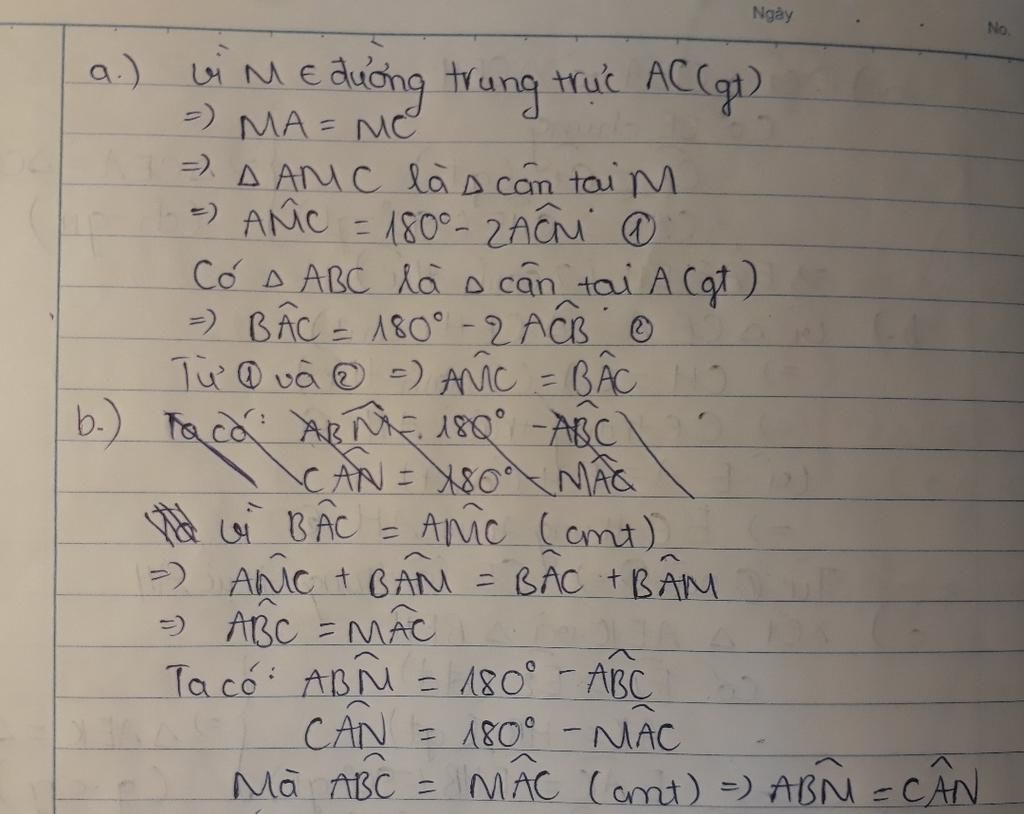 Ngày
No.
a.) Vì M ∈ đường trung trực AC (gt)
=> MA = MC
=> Δ AMC là Δ cân tai M
=> AM̂C = 180° - 2AĈM ①
Có Δ ABC là Δ cân tai A (gt)
=> BÂC = 180° - 2AĈB ②
Từ ① và ② => AM̂C = BÂC
b.) Ta có: AB̂M = 180° - AB̂C
CÂN = 180° - MÂC
Vì BÂC = AM̂C (cmt)
=> AM̂C + BÂM = BÂC + BÂM
=> AB̂C = MÂC
Ta có: ABM̂ = 180° - AB̂C
CÂN = 180° - MÂC
Mà AB̂C = MÂC (cmt) => ABM̂ = CÂN